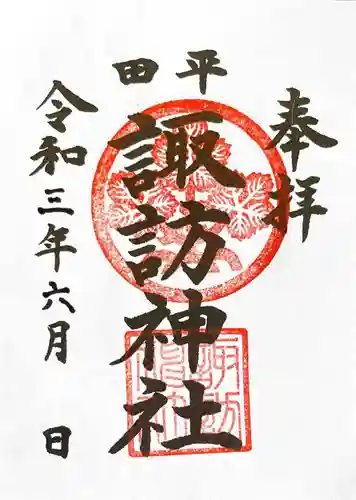 奉拝
平田
諏訪神社
令和三年六月 日